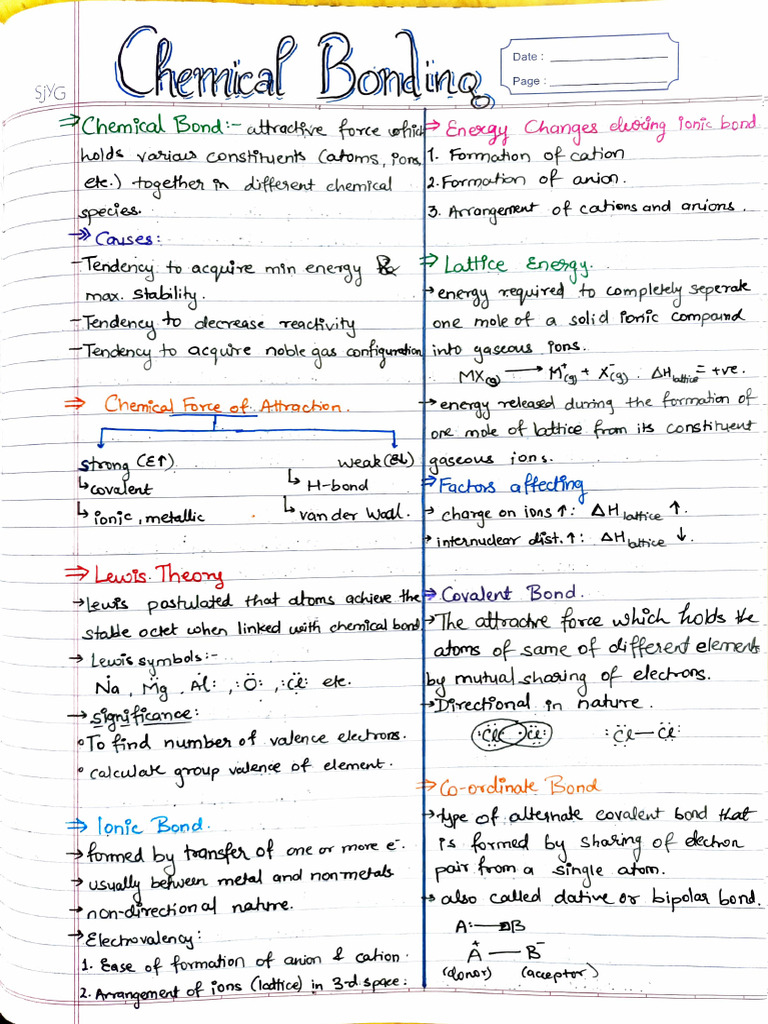 Chemical Bonding
Date :
Page :
SJYG
⇒ Chemical Bond:- attractive force which
holds various constituents (atoms, ions,
etc.) together in different chemical
species.
⇒ Causes:
- Tendency to acquire min energy &
max. stability.
- Tendency to decrease reactivity
- Tendency to acquire noble gas configuration
⇒ Chemical Force of Attraction.
strong (E↑)
↳ covalent
↳ ionic, metallic
weak (E↓)
↳ H-bond
↳ van der Waal.
⇒ Lewis Theory
→ lewis postulated that atoms achieve the
stable octet when linked with chemical bond
→ Lewis symbols:-
Na, Mg, Al, :O:, :Cl: etc.
→ significance:
• To find number of valence electrons.
• calculate group valence of element.
⇒ Ionic Bond.
→ formed by transfer of one or more e⁻.
→ usually between metal and nonmetals
→ non-directional nature.
→ Electrovalency:
1. Ease of formation of anion & cation.
2. Arrangement of ions (lattice) in 3-d space:
⇒ Energy Changes during ionic bond
1. Formation of cation
2. Formation of anion.
3. Arrangement of cations and anions.
⇒ Lattice Energy.
→ energy required to completely seperate
one mole of a solid ionic compound
into gaseous ions.
MX(s) → M⁺(g) + X⁻(g). ΔHlattice = +ve.
→ energy released during the formation of
one mole of lattice from its constituent
gaseous ions.
⇒ Factors affecting
→ charge on ions ↑: ΔHlattice ↑.
→ internuclear dist. ↑: ΔHlattice ↓.
⇒ Covalent Bond.
→ The attractive force which holds the
atoms of same of different elements
by mutual sharing of electrons.
→ Directional in nature.
:Cl :Cl: :Cl—Cl:
⇒ Co-ordinate Bond
→ type of alternate covalent bond that
is formed by sharing of electron
pair from a single atom.
→ also called dative or bipolar bond.
A: → B
A⁺ — B⁻
(donor) (acceptor)